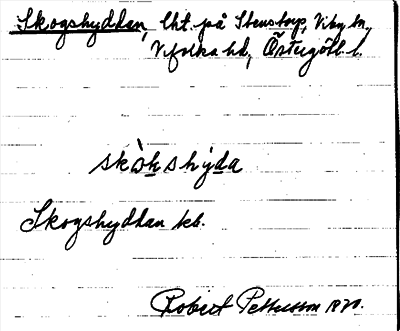 Skogshyddan, lht. på Stenstorp, Viby sn,
Vifolka hd, Östergötl. l.
skòkshýda
Skogshyddan kb.
Robert Pettersson